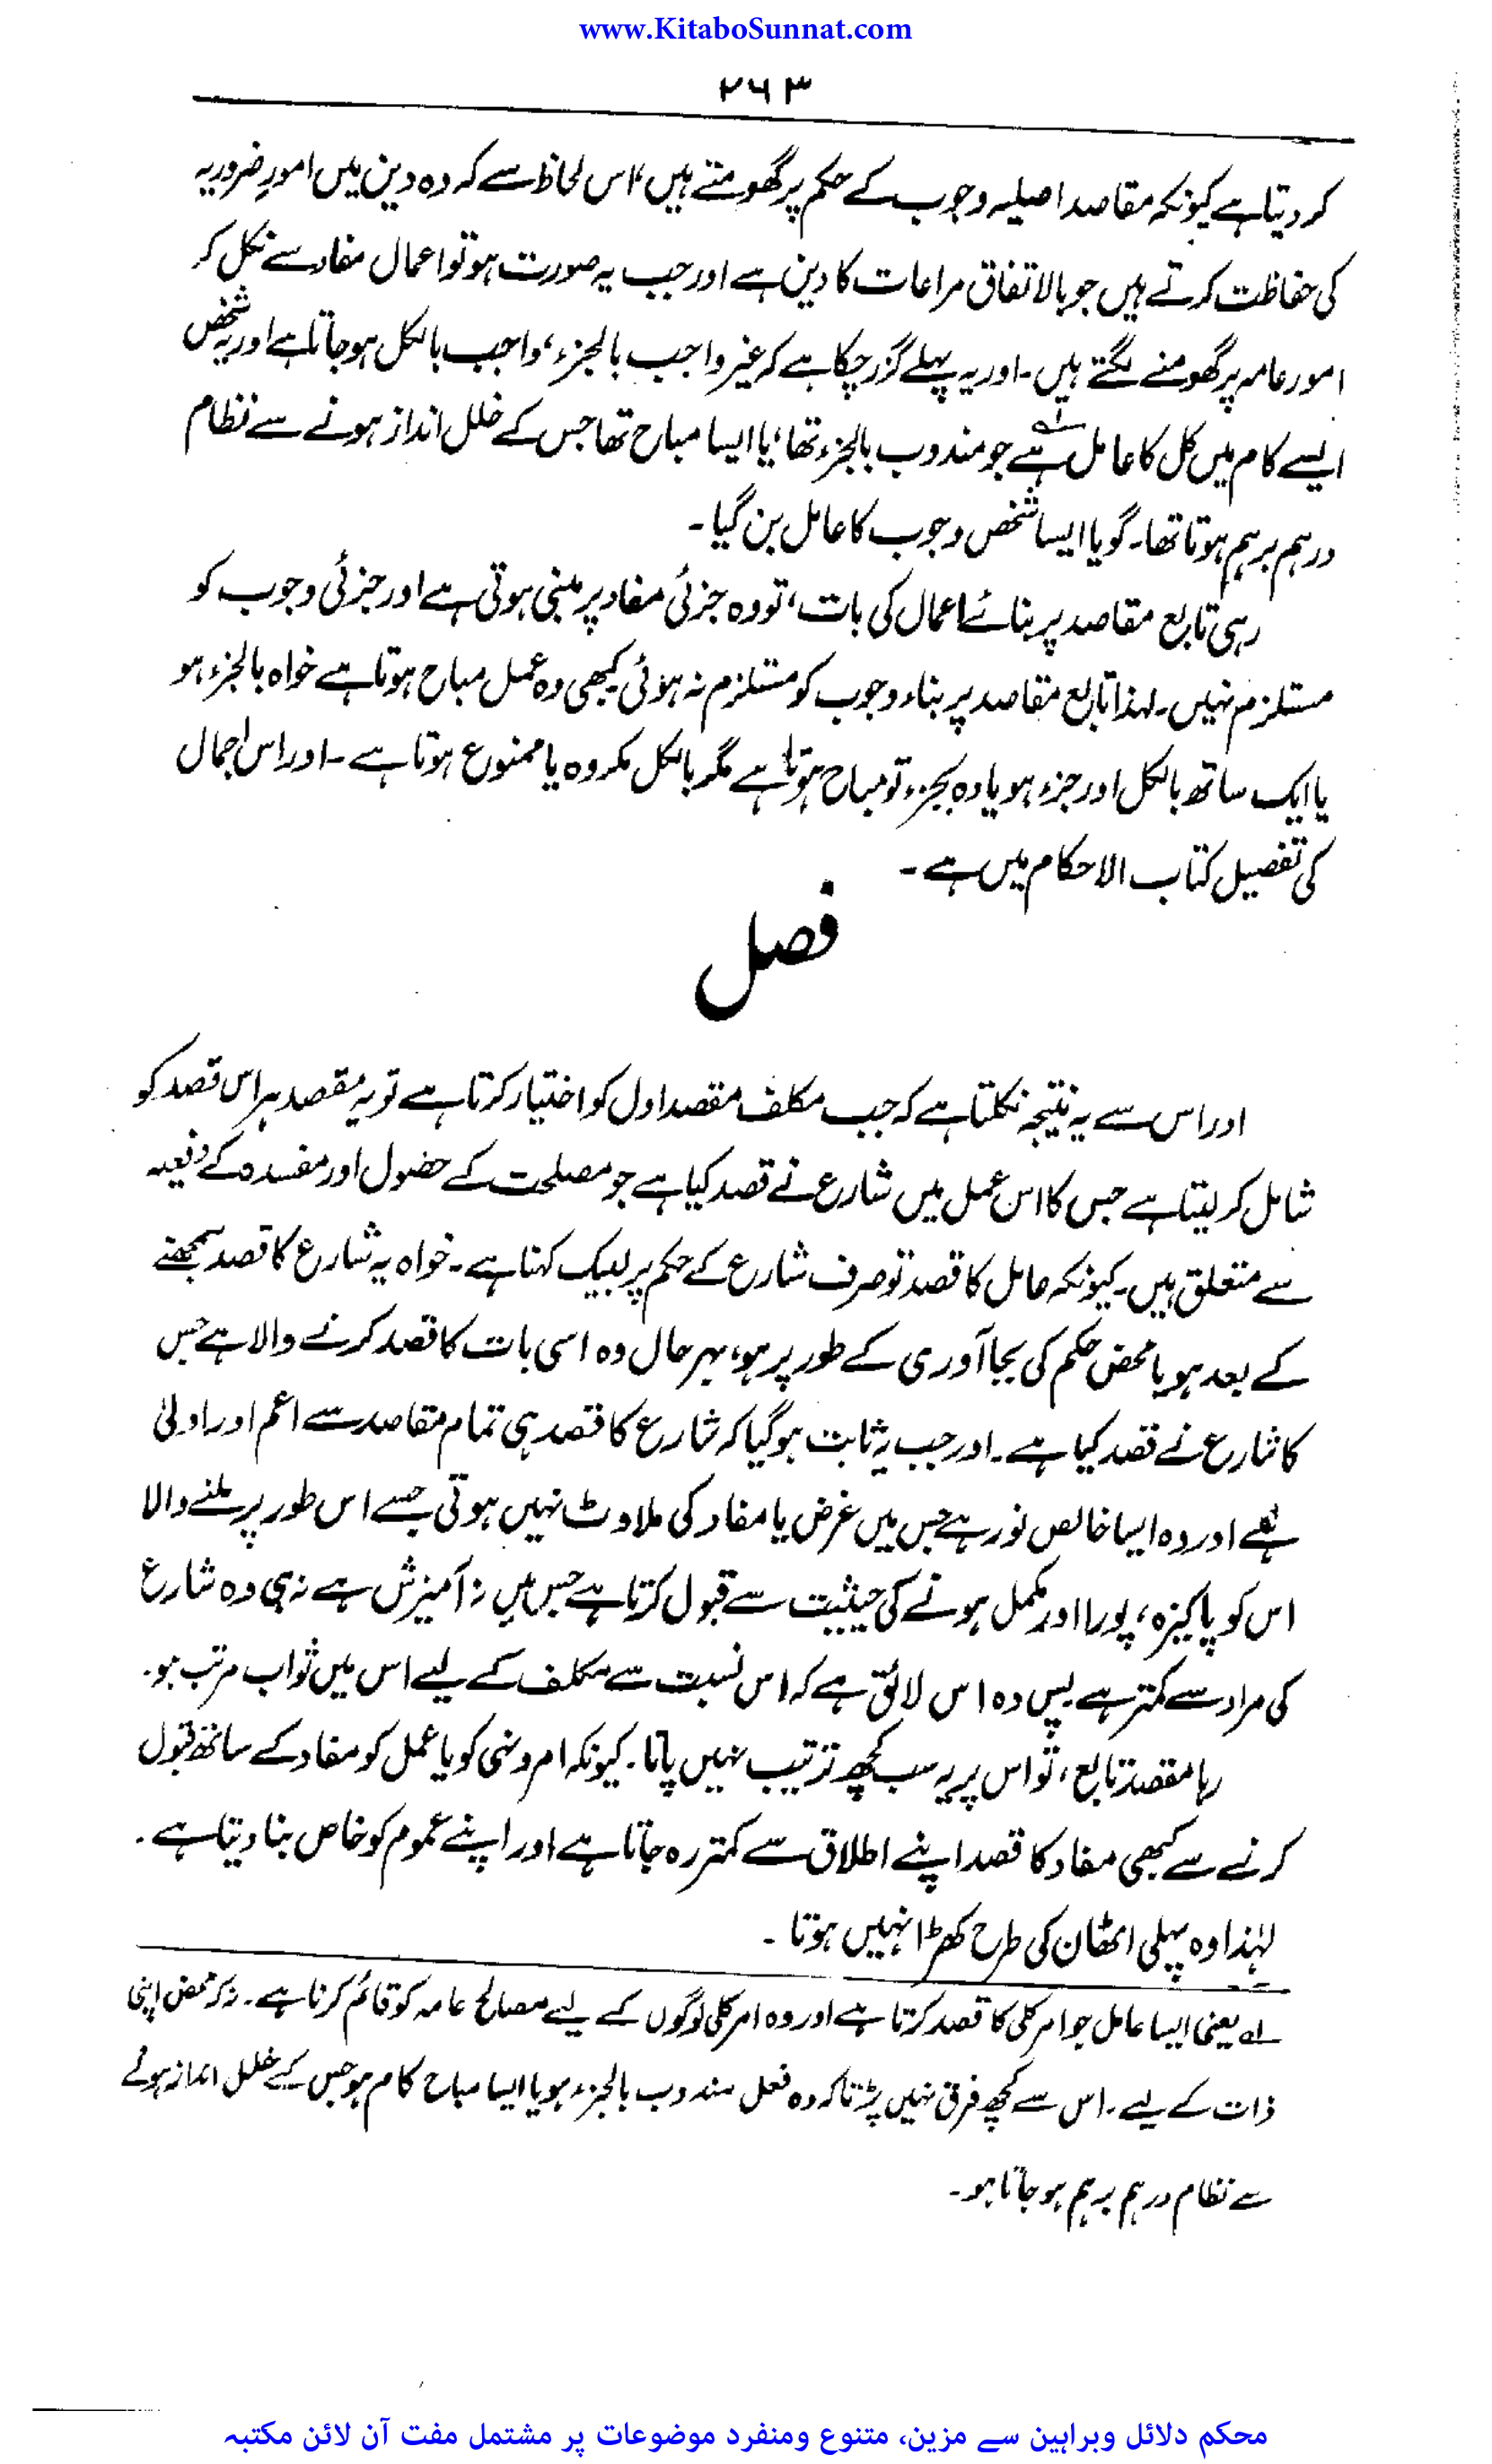 www.KitaboSunnat.com
۲۶۳
کر دیتا ہے کیونکہ مقاصد اصلیہ وجوب کے حکم پر گھومتے ہیں، اس لحاظ سے کہ وہ دین میں امورِ ضروریہ
کی حفاظت کرتے ہیں جو بالاتفاق مراعات کا دین ہے اور جب یہ صورت ہو تو اعمال مفاد سے نکل کر
امور عامہ پر گھومنے لگتے ہیں۔ اور یہ پہلے گزر چکا ہے کہ غیر واجب بالجزء، واجب بالکل ہو جاتا ہے اور یہ شخص
ایسے کام میں کل کا عامل ہے لہ جو مندوب بالجزء تھا، یا ایسا مباح تھا جس کے خلل انداز ہونے سے نظام
درہم برہم ہوتا تھا۔ گویا ایسا شخص وجوب کا عامل بن گیا۔
رہی تابع مقاصد پر بنائے اعمال کی بات، تو وہ جزئی مفاد پر مبنی ہوتی ہے اور جزئی وجوب کو
مستلزم نہیں۔ لہذا تابع مقاصد پر بناء وجوب کو مستلزم نہ ہوئی کبھی وہ عمل مباح ہوتا ہے خواہ بالجزء ہو
یا ایک ساتھ بالکل اور جزء ہو یا وہ بجزء تو مباح ہوتا ہے مگر بالکل مکروہ یا ممنوع ہوتا ہے۔ اور اس اجمال
کی تفصیل کتاب الاحکام میں ہے۔
فصل
اور اس سے یہ نتیجہ نکلتا ہے کہ جب مکلف مقصد اول کو اختیار کرتا ہے تو یہ مقصد ہر اس قصد کو
شامل کر لیتا ہے جس کا اس عمل میں شارع نے قصد کیا ہے جو مصلحت کے حضول اور مفسدہ کے دفعیہ
سے متعلق ہیں۔ کیونکہ عامل کا قصد تو صرف شارع کے حکم پر لبیک کہنا ہے۔ خواہ یہ شارع کا قصد سمجھنے
کے بعد ہو یا محض حکم کی بجا آوری کے طور پر ہو، بہر حال وہ اسی بات کا قصد کرنے والا ہے جس
کا شارع نے قصد کیا ہے۔ اور جب یہ ثابت ہو گیا کہ شارع کا قصد ہی تمام مقاصد سے اعم اور اولیٰ
ہے اور وہ ایسا خالص نور ہے جس میں غرض یا مفاد کی ملاوٹ نہیں ہوتی جسے اس طور پر ملنے والا
اس کو پاکیزہ، پورا اور مکمل ہونے کی حیثیت سے قبول کرتا ہے جس میں نہ آمیزش ہے نہ ہی وہ شارع
کی مراد سے کمتر ہے پس وہ اس لائق ہے کہ اس نسبت سے مکلف کے لیے اس میں ثواب مرتب ہو۔
رہا مقصد تابع، تو اس پر یہ سب کچھ ترتیب نہیں پاتا۔ کیونکہ امر و نہی کو یا عمل کو مفاد کے ساتھ قبول
کرنے سے کبھی مفاد کا قصد اپنے اطلاق سے کمتر رہ جاتا ہے اور اپنے عموم کو خاص بنا دیتا ہے۔
لہٰذا وہ پہلی اٹھان کی طرح کھڑا نہیں ہوتا۔
لہ یعنی ایسا عامل جو امر کلی کا قصد کرتا ہے اور وہ امر کلی لوگوں کے لیے مصالح عامہ کو قائم کرنا ہے۔ نہ کہ محض اپنی
ذات کے لیے۔ اس سے کچھ فرق نہیں پڑتا کہ وہ فعل مندوب بالجزء ہو یا ایسا مباح کام ہو جس کے خلل انداز ہونے
سے نظام درہم برہم ہو جاتا ہو۔
محکم دلائل وبراہین سے مزین، متنوع ومنفرد موضوعات پر مشتمل مفت آن لائن مکتبہ